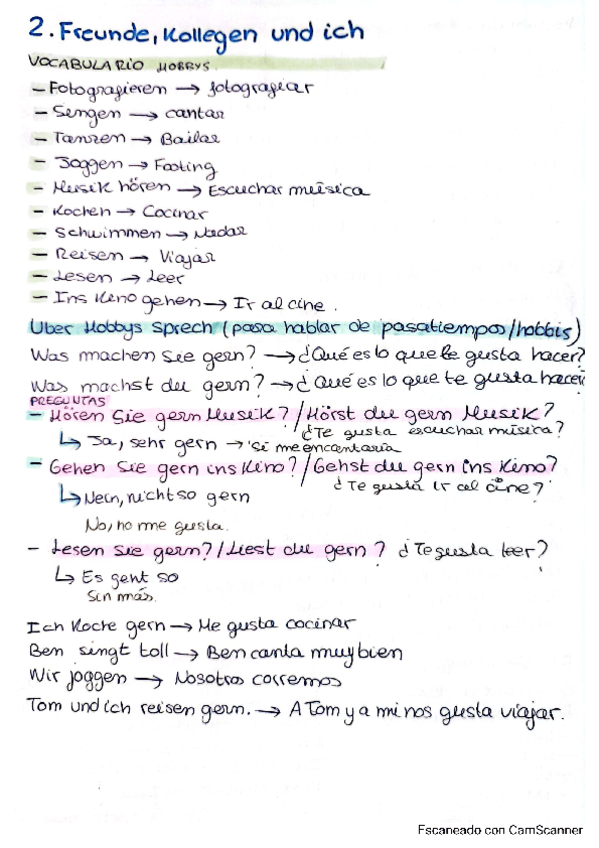 2. Freunde, Kollegen und ich
VOCABULARIO HOBBYS.
- Fotografieren → fotografiar
- Sengen → cantar
- Tanzen → Bailar
- Joggen → Footing
- Musik hören → Escuchar música
- Kochen → Cocinar
- Schwimmen → Nadar
- Reisen → Viajar
- Lesen → Leer
- Ins Keno gehen → Ir al cine.
Über Hobbys Sprech (para hablar de pasatiempos/hobbis)
Was machen See gern? → ¿Qué es lo que le gusta hacer?
Was machst du gern? → ¿Qué es lo que te gusta hacer?
PREGUNTAS
- Hören Sie gern Musik? / Hörst du gern Musik?
¿Te gusta escuchar música?
↳ Ja, sehr gern → si me encantaria
- Gehen Sie gern ins Kino? / Gehst du gern ins Keno?
¿Te gusta ir al cine?
↳ Nein, nicht so gern
No, no me gusta.
- Lesen Sie gern? / Liest du gern? ¿Te gusta leer?
↳ Es geht so
Sin más.
Ich Koche gern → Me gusta cocinar
Ben singt toll → Ben canta muy bien
Wir joggen → Nosotros corremos
Tom und ich reisen gern. → A Tom y a mi nos gusta viajar.
Escaneado con CamScanner